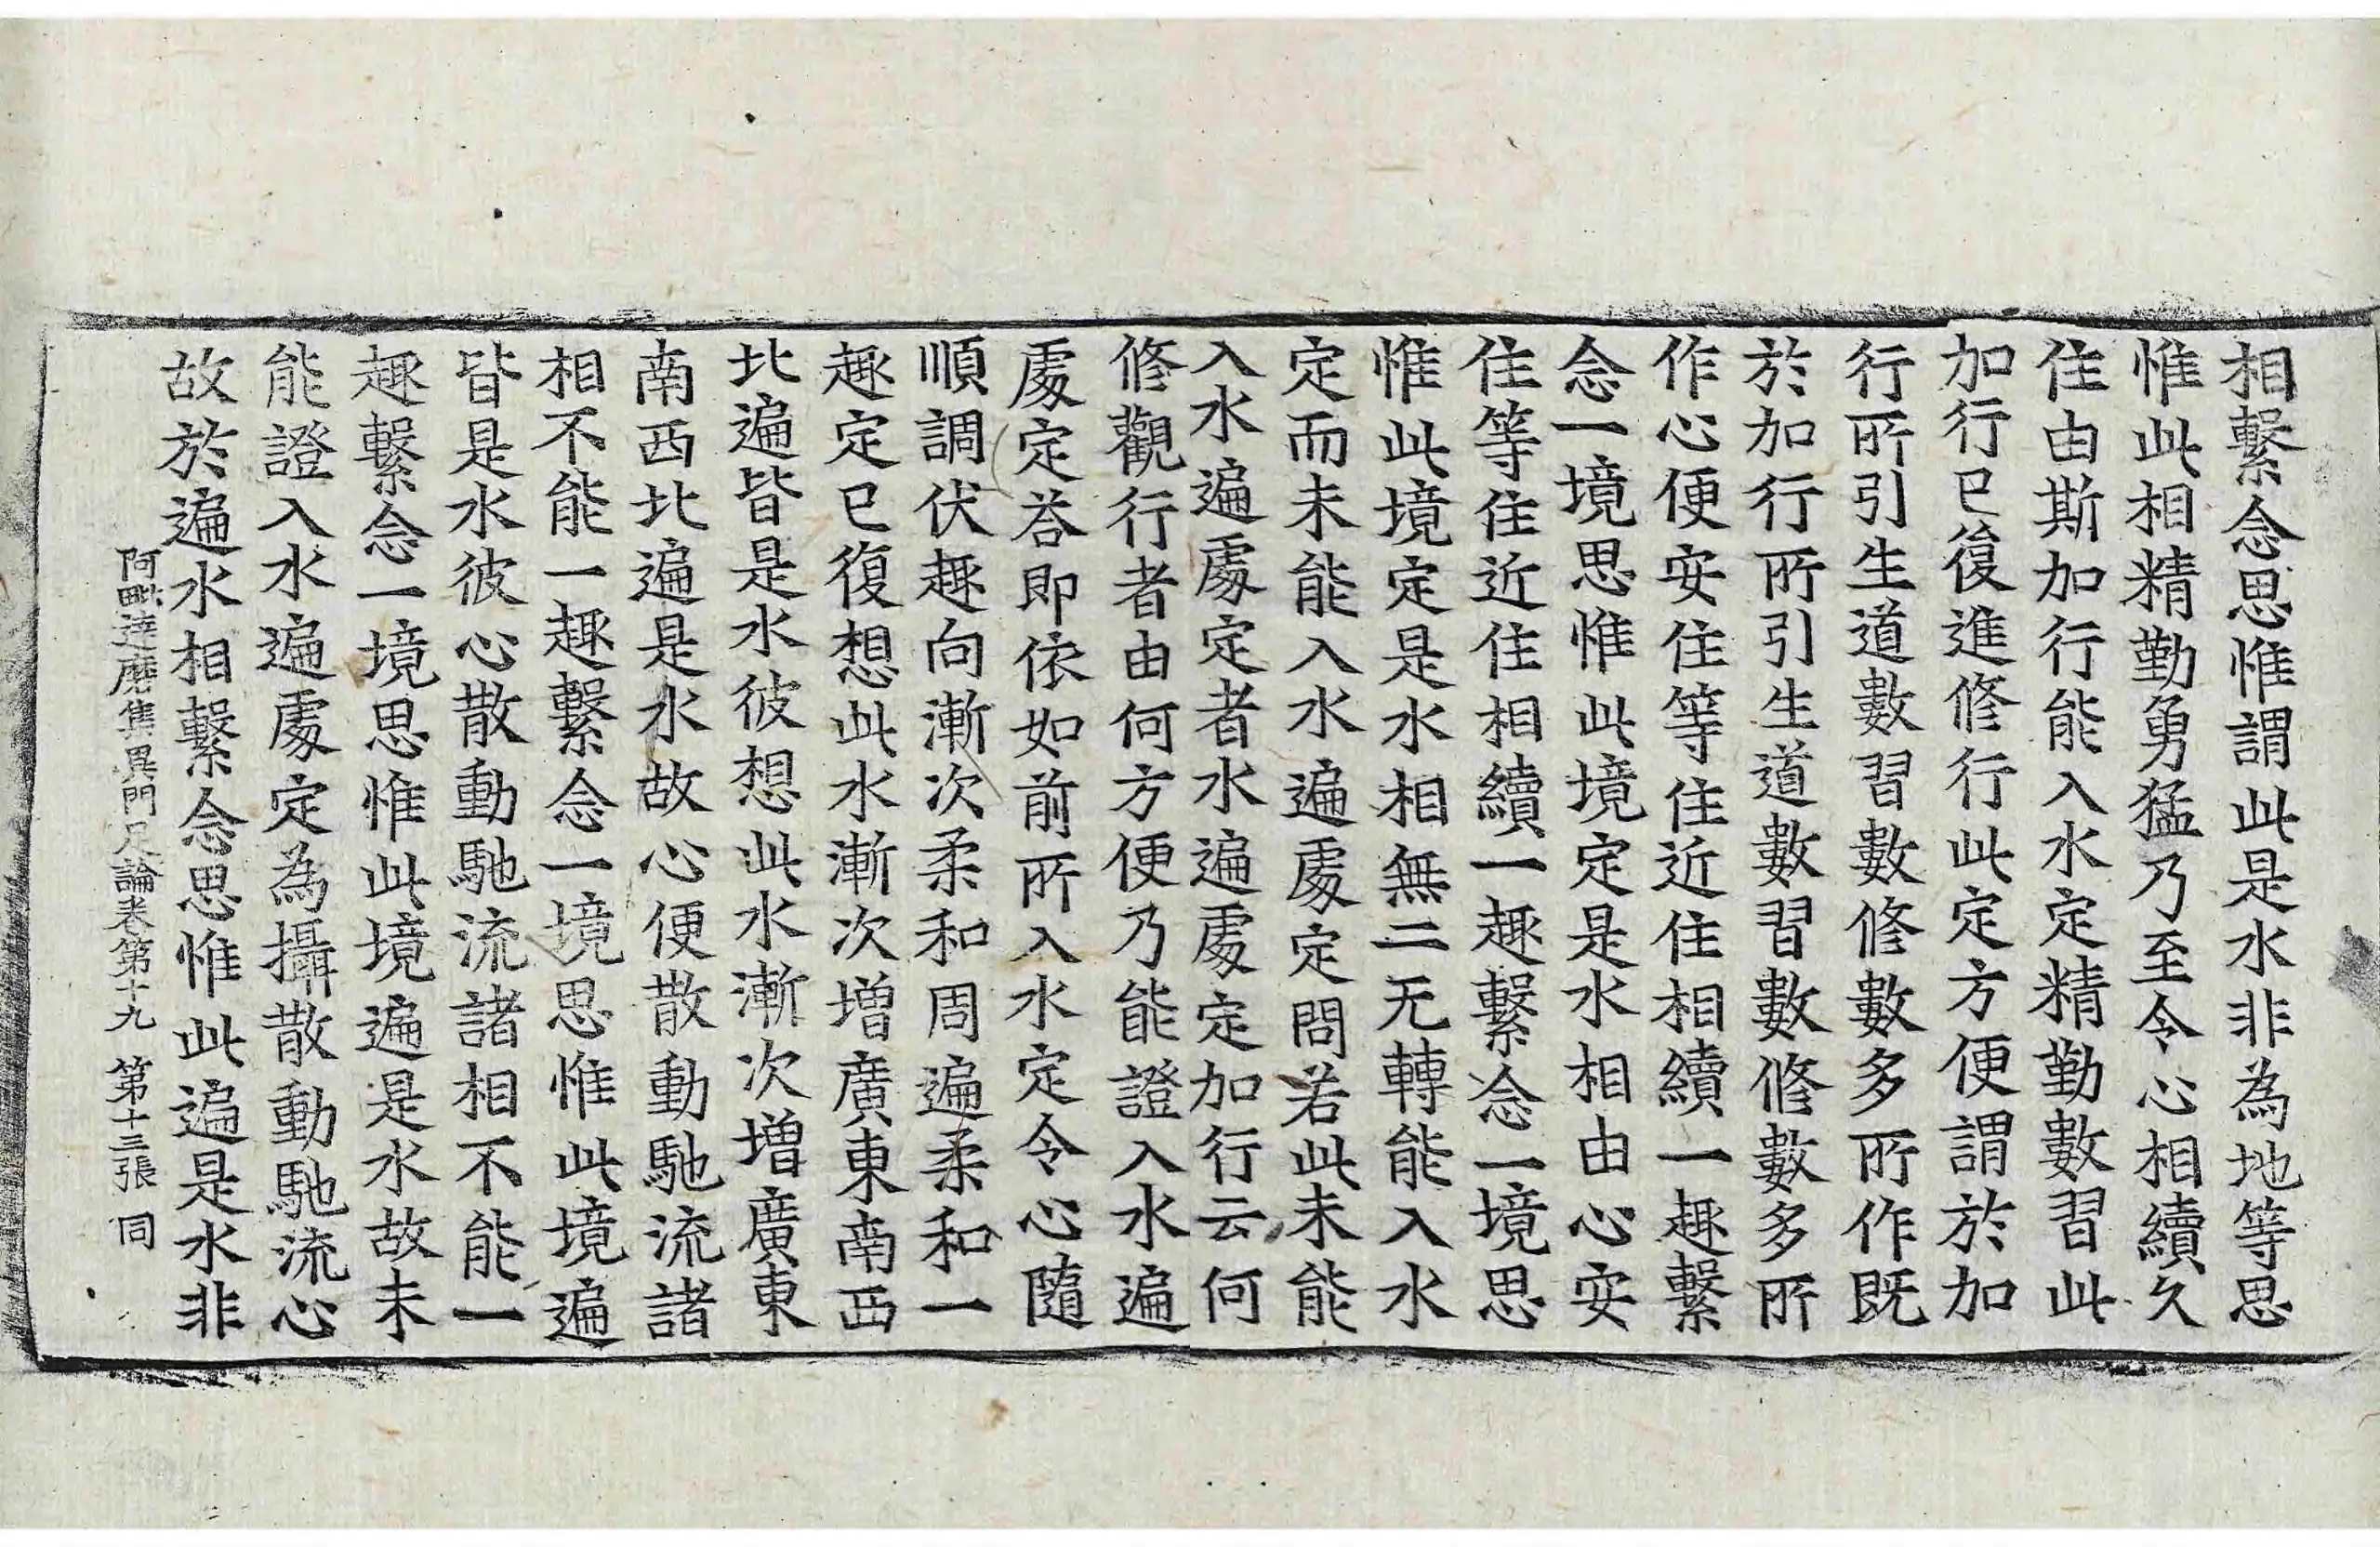 相繫念思惟謂此是水非為地等思
惟此相精勤勇猛乃至令心相續久
住由斯加行能入水定精勤數習此
加行已復進修行此定方便謂於加
行所引生道數習數修數多所作既
於加行所引生道數習數修數多所
作心便安住等住近住相續一趣繫
念一境思惟此境定是水相由心安
住等住近住相續一趣繫念一境思
惟此境定是水相無二无轉能入水
定而未能入水遍處定問若此未能
入水遍處定者水遍處定加行云何
修觀行者由何方便乃能證入水遍
處定荅即依如前所入水定令心隨
順調伏趣向漸次柔和周遍柔和一
趣定已復想此水漸次增廣東南西
北遍皆是水彼想此水漸次增廣東
南西北遍是水故心便散動馳流諸
相不能一趣繫念一境思惟此境遍
皆是水彼心散動馳流諸相不能一
趣繫念一境思惟此境遍是水故未
能證入水遍處定為攝散動馳流心
故於遍水相繫念思惟此遍是水非
阿毗達磨集異門足論卷第十九 第十三張 同